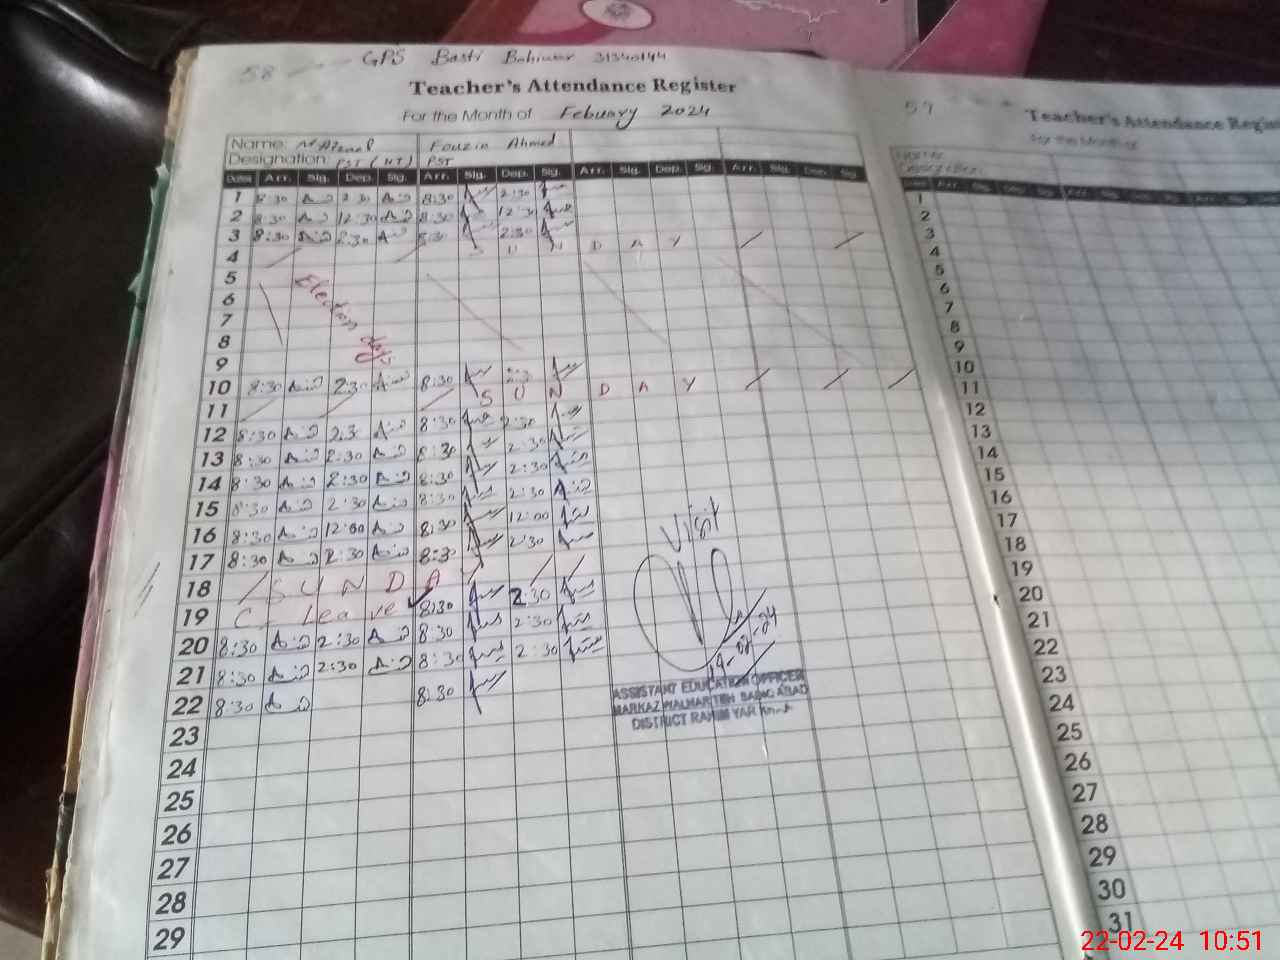 58
GPS Basti Bohiwar 31340144
Teacher's Attendance Register
For the Month of Febuary 2024
Name: M Afzaal Fouzia Ahmed
Designation: PST (HT) PST
Date Arr. Sig. Dep. Sig. Arr. Sig. Dep. Sig. Arr. Sig. Dep. Sig. Arr. Sig. Dep. Sig.
1 8:30 2:30 8:30 2:30
2 8:30 12:30 8:30 12:30
3 8:30 2:30 8:30 2:30
4 S U N D A Y
5
6 Election days
7
8
9
10 8:30 2:30 8:30 2:30
11 S U N D A Y
12 8:30 2:3 8:30 2:30
13 8:30 2:30 8:30 2:30
14 8:30 2:30 8:30 2:30
15 8:30 2:30 8:30 2:30
16 8:30 12:00 8:30 12:00
17 8:30 2:30 8:30 2:30
18 S U N D A Y
19 C. Leave 8:30 2:30
20 8:30 2:30 8:30 2:30
21 8:30 2:30 8:30 2:30
22 8:30 8:30
23
24
25
26
27
28
29
Visit
19-02-24
ASSISTANT EDUCATION OFFICER
MARKAZ
DISTRICT RAHIM YAR KHAN
59
Teacher's Attendance Regis
For the Month of
Name:
Designation:
Date Arr. Sig. Dep. Sig. Arr. Sig. Dep. Sig. Dep
1
2
3
4
5
6
7
8
9
10
11
12
13
14
15
16
17
18
19
20
21
22
23
24
25
26
27
28
29
30
31
22-02-24 10:51